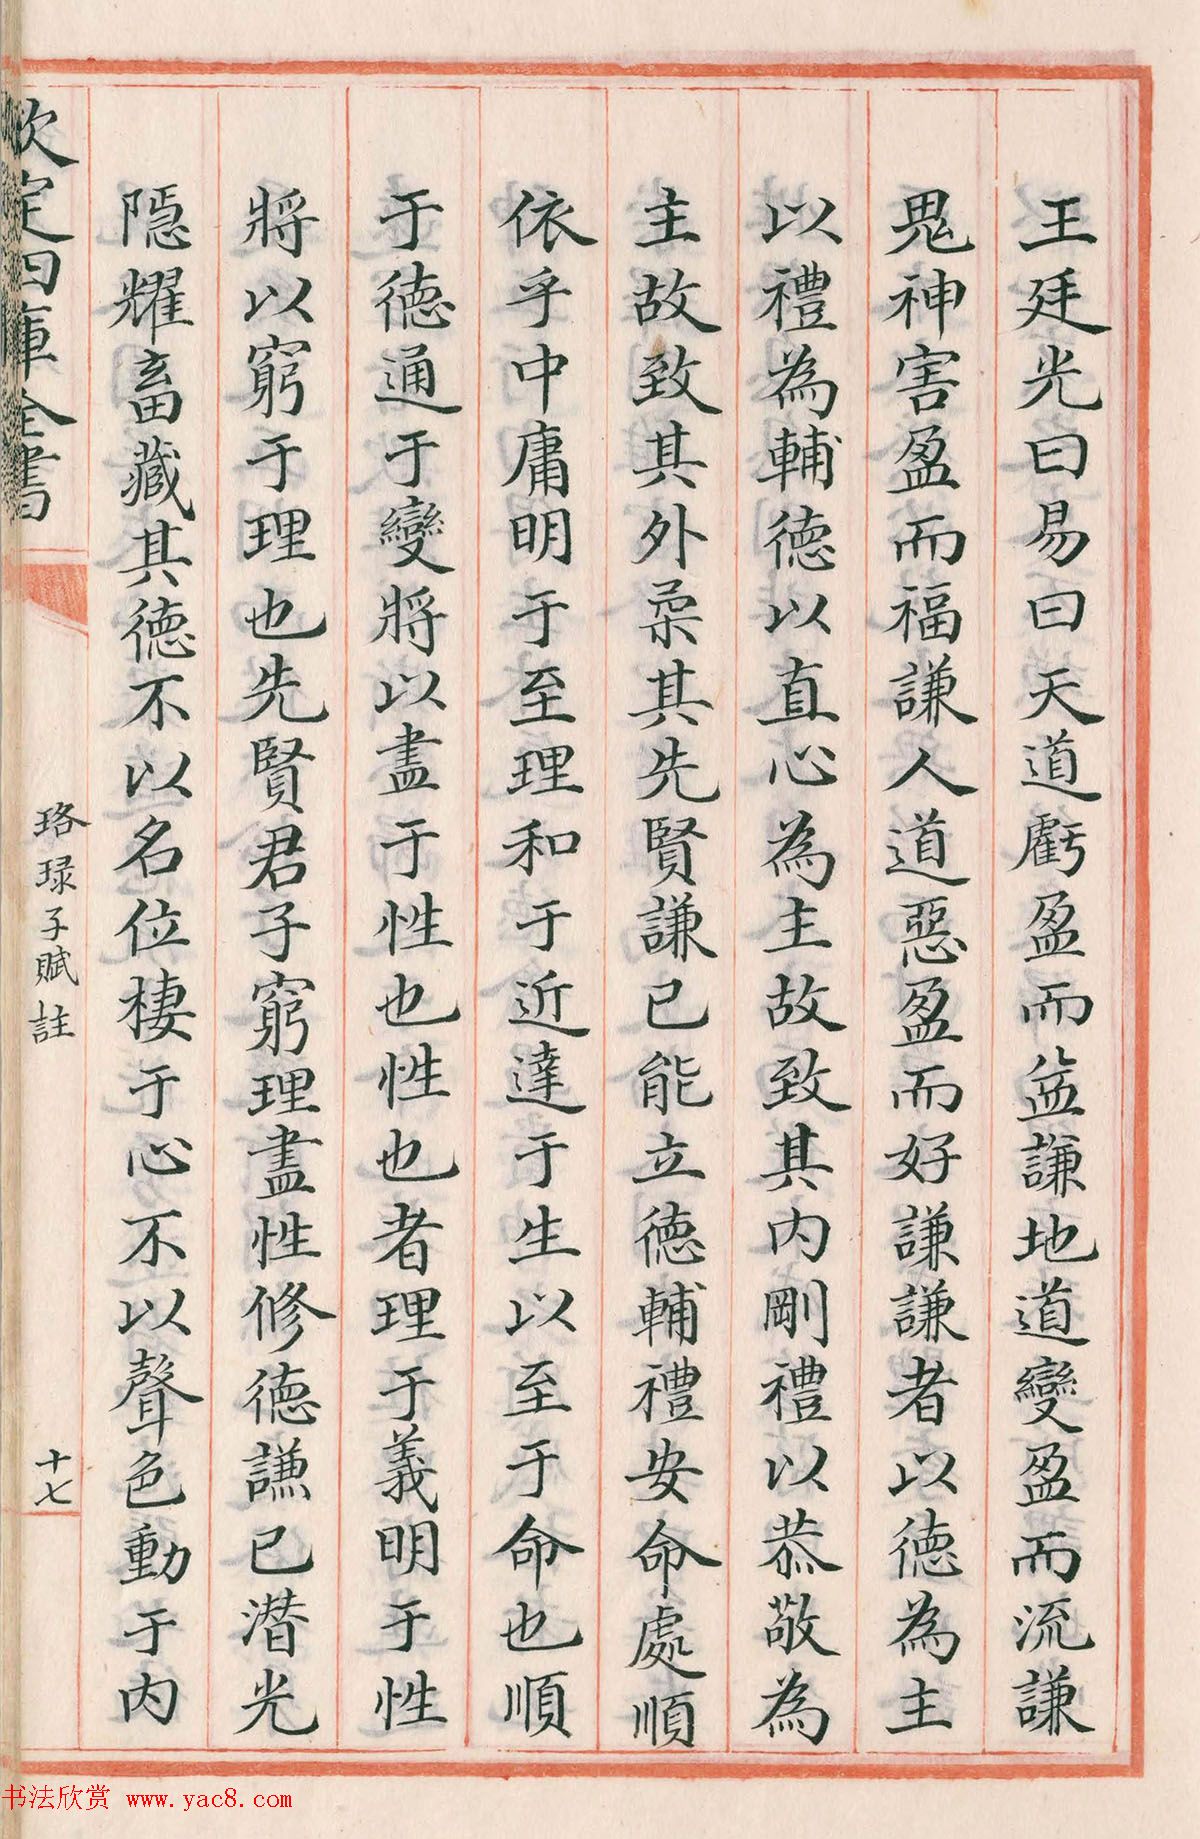 王廷光曰易曰天道虧盈而益謙地道變盈而流謙
鬼神害盈而福謙人道惡盈而好謙謙者以德為主
以禮為輔德以直心為主故致其内剛禮以恭敬為
主故致其外柔其先賢謙已能立德輔禮安命處順
依乎中庸明于至理和于近達于生以至于命也順
于德通于變將以盡于性也性也者理于義明于性
將以窮于理也先賢君子窮理盡性修德謙已潜光
隠耀畜藏其德不以名位棲于心不以聲色動于内
欽定四庫全書
珞琭子賦註
十七
书法欣赏 www.yac8.com